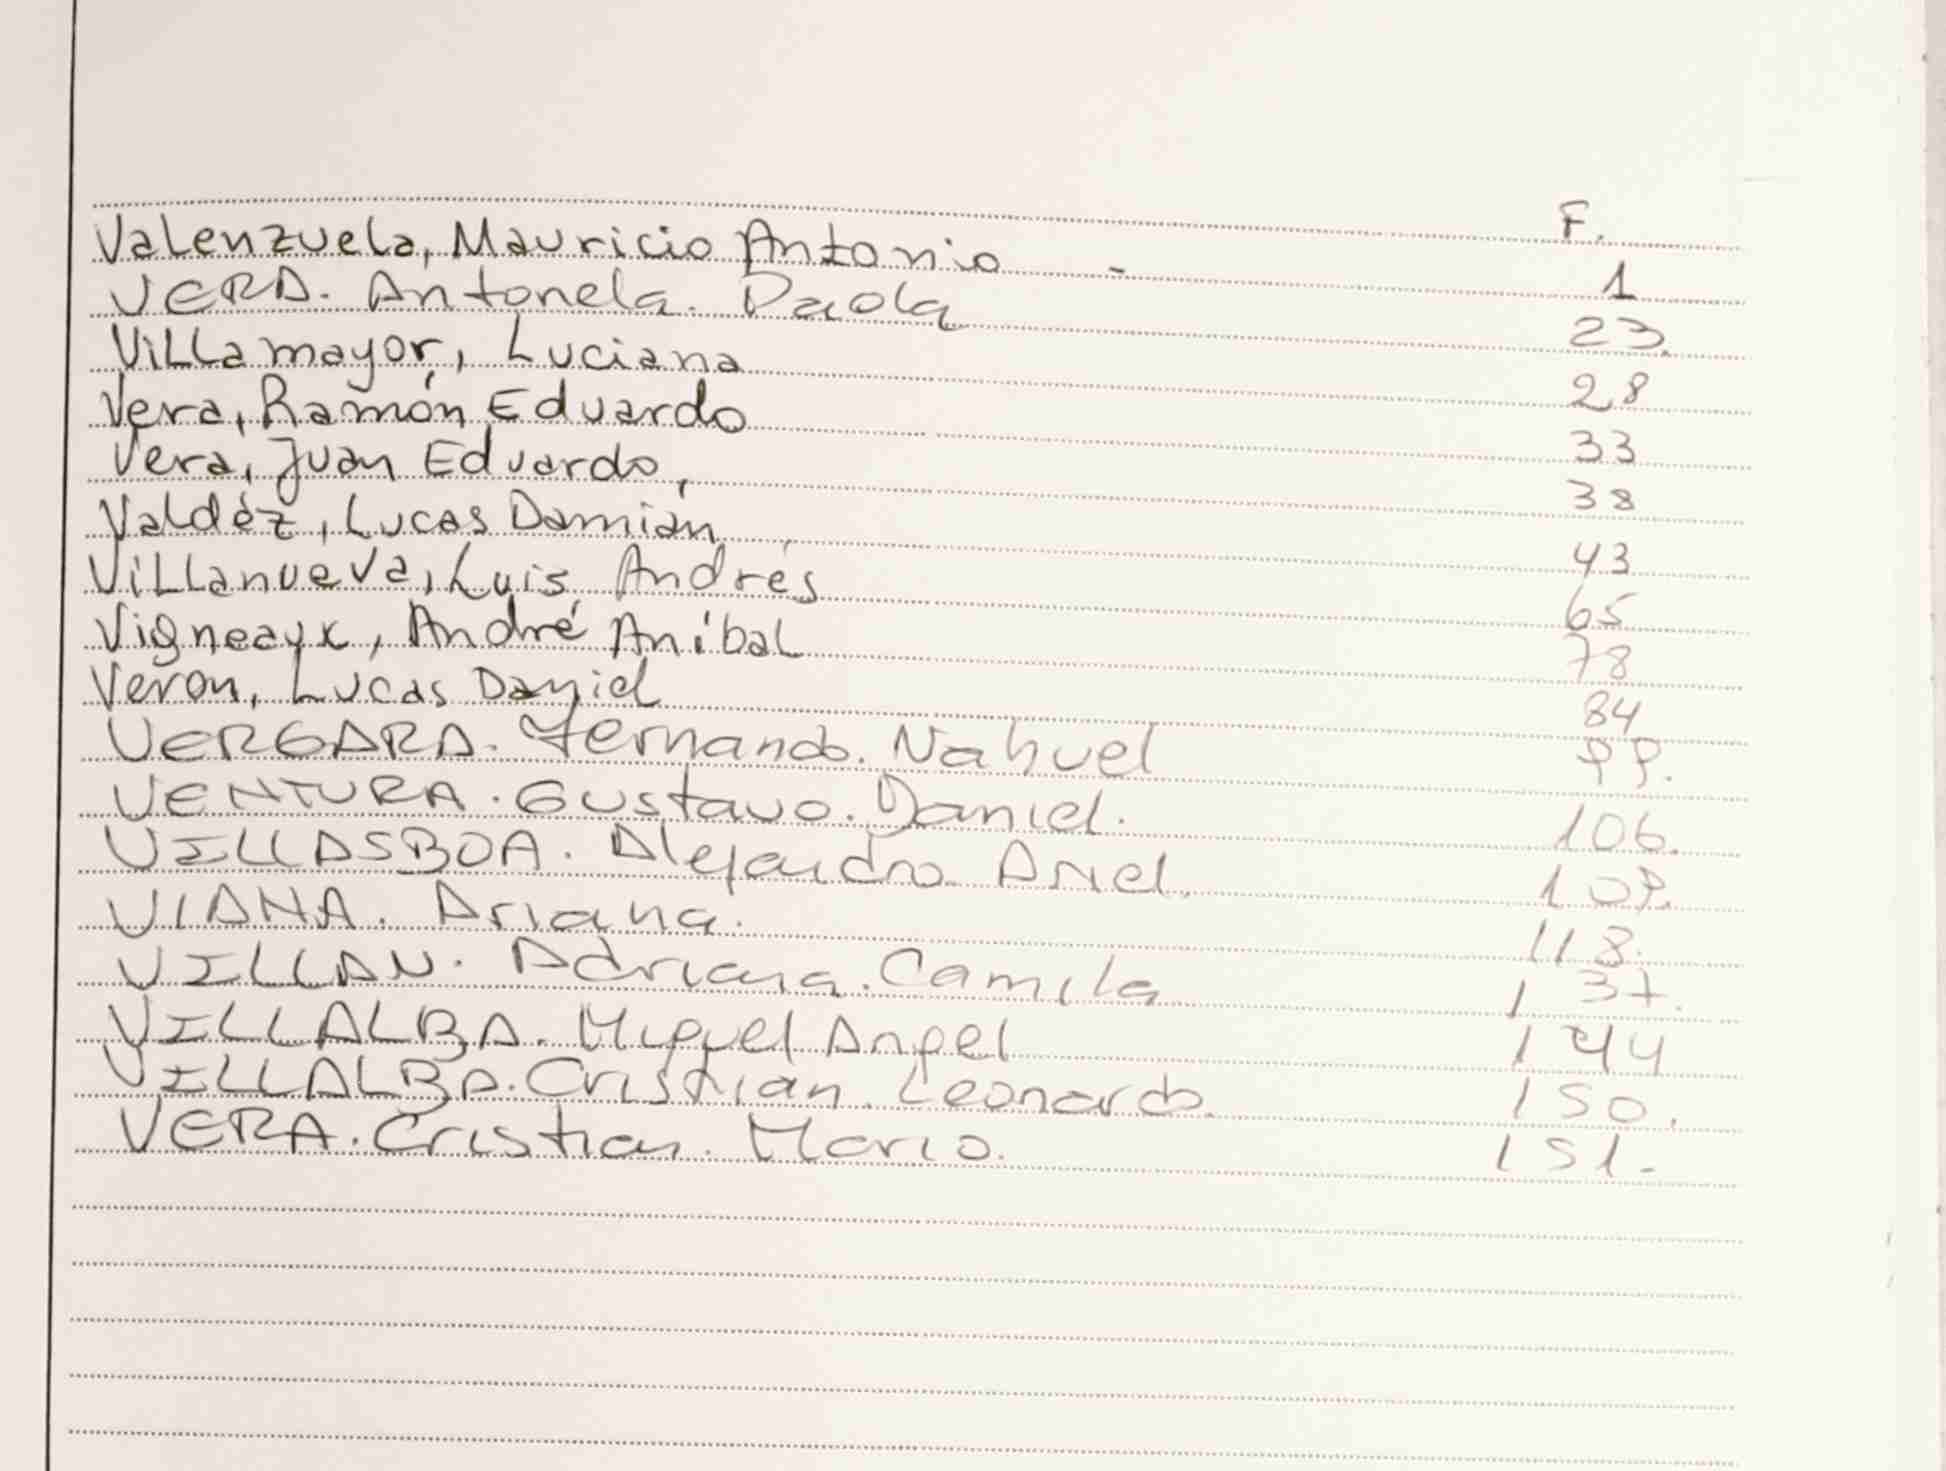 F.
Valenzuela, Mauricio Antonio - 1
VERA. Antonela. Paola 23.
Villamayor, Luciana 28
Vera, Ramón Eduardo 33
Vera, Juan Eduardo, 38
Valdéz, Lucas Damián 43
Villanueva, Luis Andrés 65
Vigneaux, André Aníbal 78
Veron, Lucas Daniel 84
VERGARA. Fernando. Nahuel 99.
VENTURA. Gustavo. Daniel. 106.
VILLASBOA. Alejandro. Ariel. 109.
VIANA. Ariana. 118.
VILLAN. Adriana. Camila 137.
VILLALBA. Miguel Angel 144
VILLALBA. Cristian. Leonardo. 150.
VERA. Cristian. Mario. 151.-